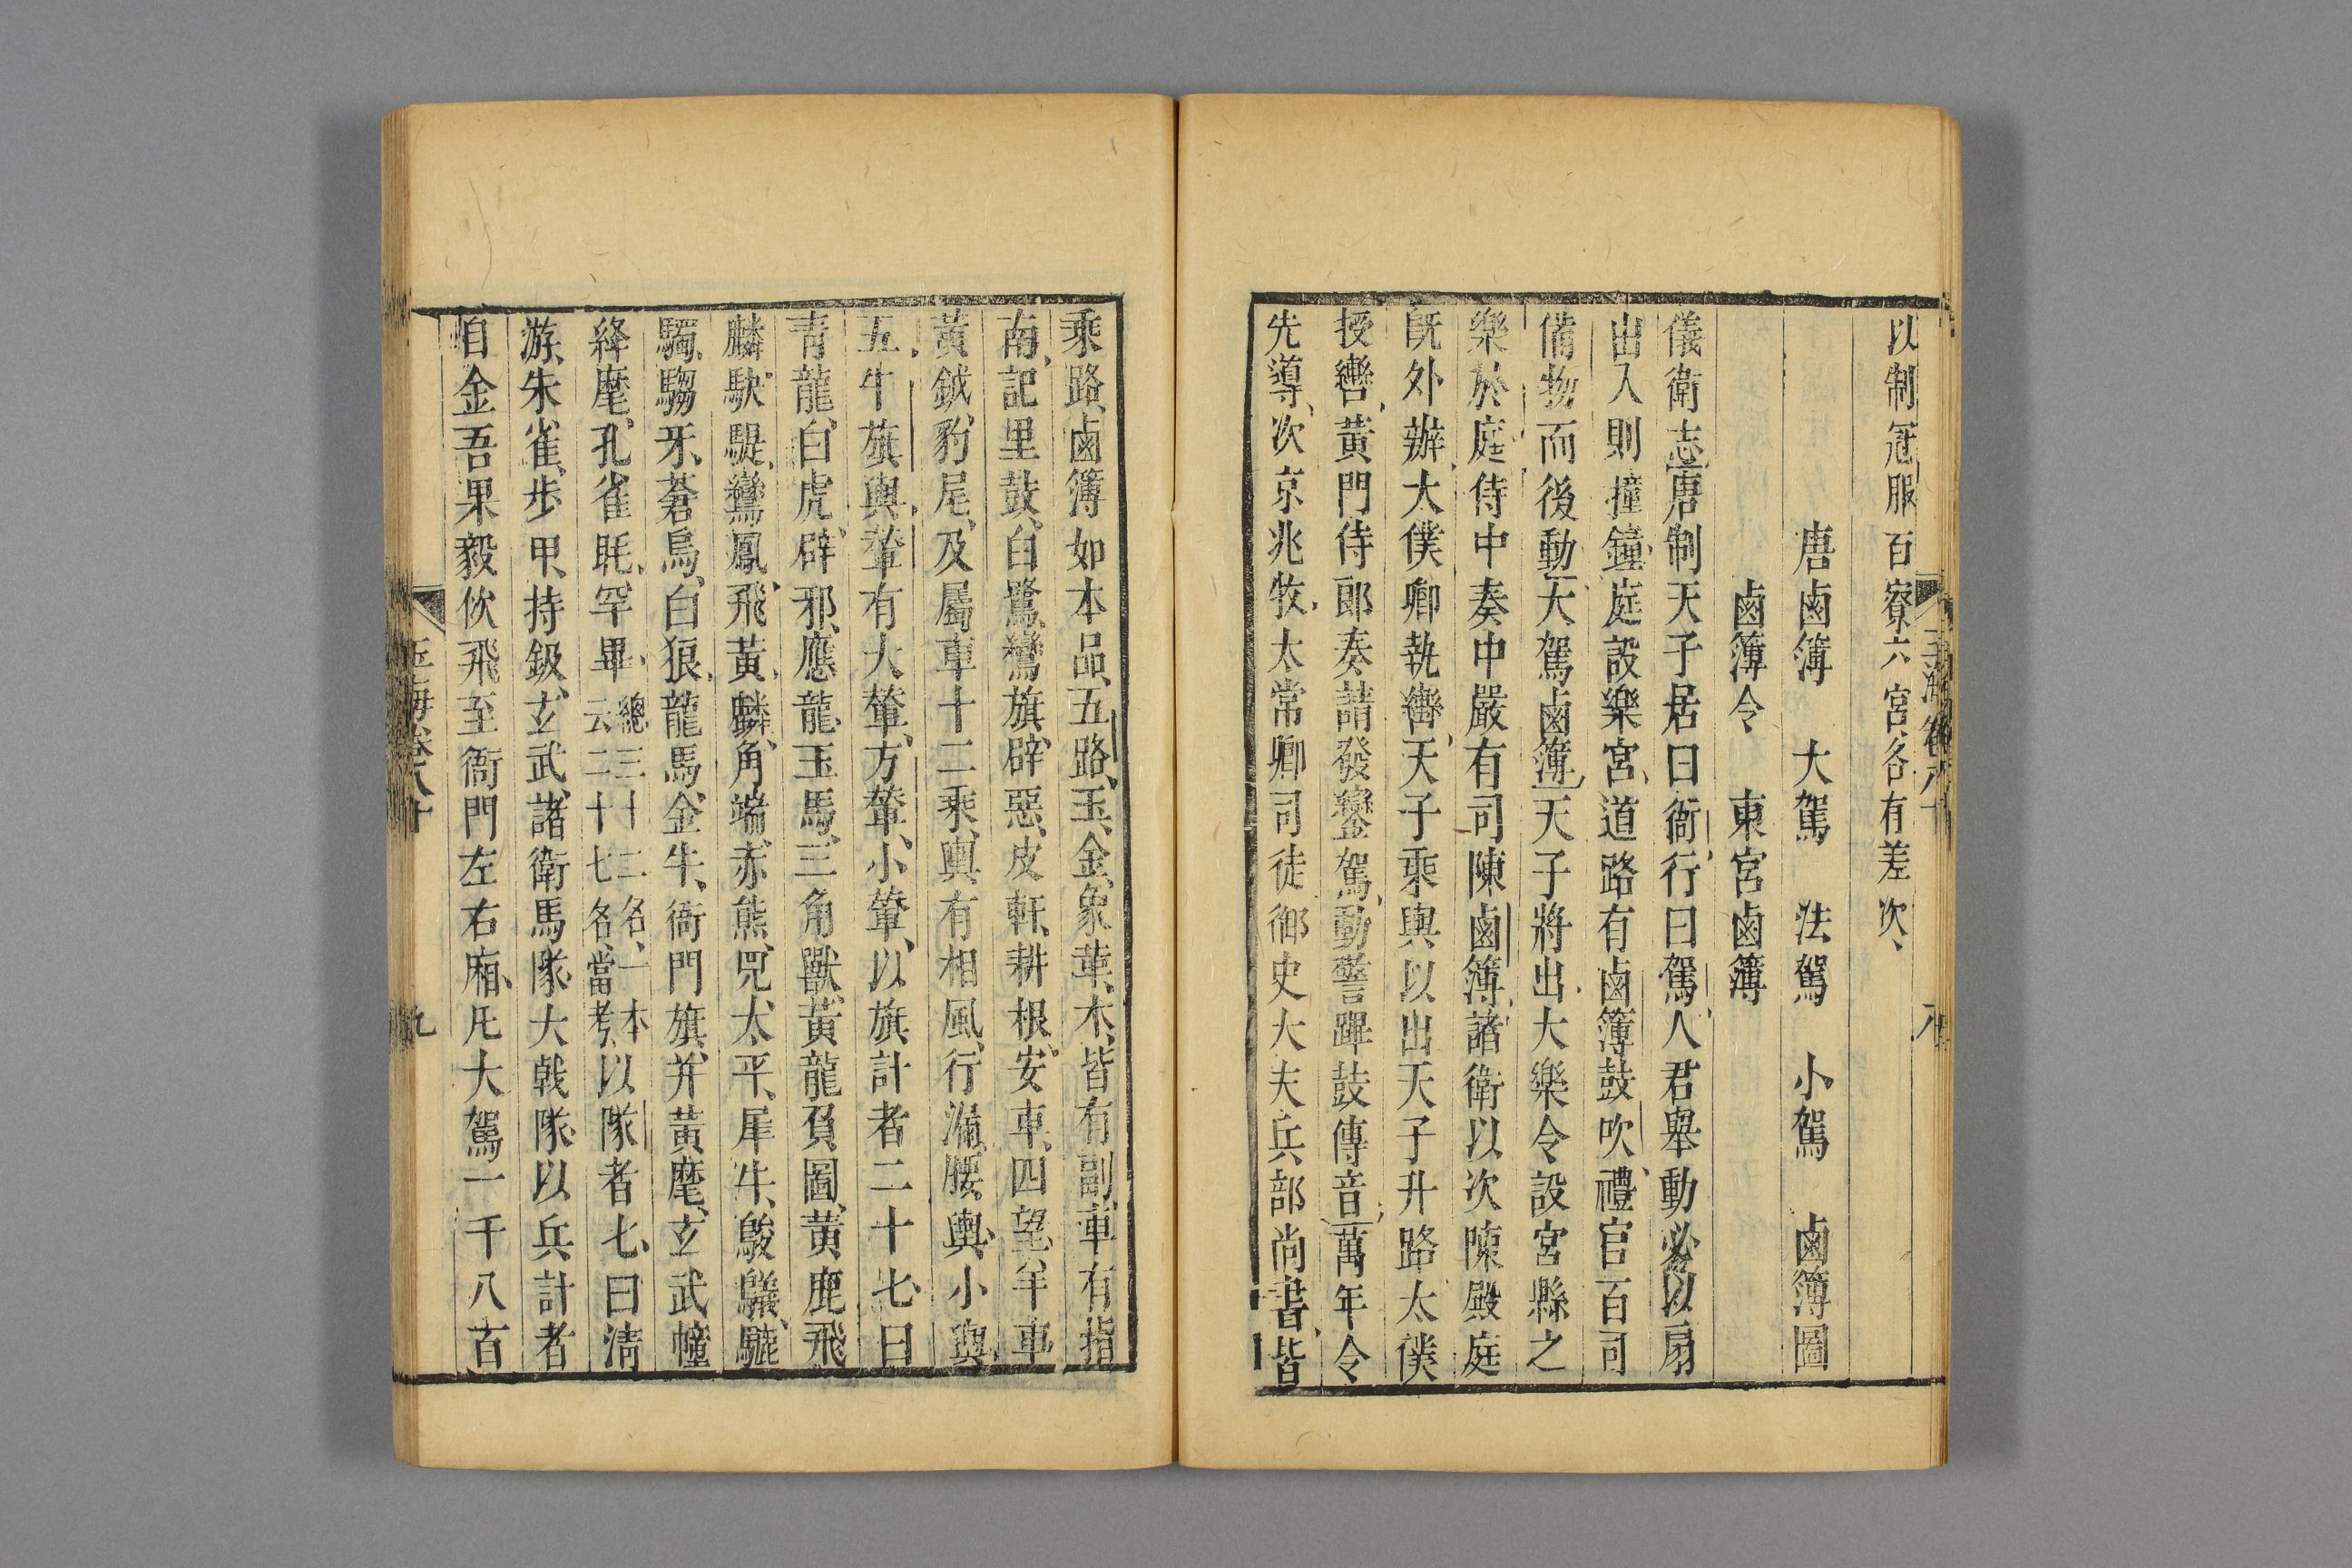 以制冠服百寮六宮各有差次、
唐鹵簿　大駕　法駕　小駕　鹵簿圖
鹵簿令　東宮鹵簿
儀衛志唐制天子居曰衙行曰駕人君舉動必以扇
出入則撞鐘庭設樂宮道路有鹵簿鼓吹禮官百司
備物而後動大駕鹵簿天子將出大樂令設宮縣之
樂於庭侍中奏中嚴有司陳鹵簿諸衛以次陳殿庭
既外辦太僕卿執轡天子乘輿以出天子升路太僕
授轡黃門侍郎奏請發鑾駕動警蹕鼓傳音萬年令
先導次京兆牧太常卿司徒御史大夫兵部尚書皆
乘路鹵簿如本品五路玉金象革木皆有副車有指
南記里鼓白鷺鸞旗辟惡皮軒耕根安車四望羊車
黃鉞豹尾及屬車十二乘輿有相風行漏腰輿小輿
五牛旗輿輦有大輦方輦小輦以旗計者二十七曰
青龍白虎辟邪應龍玉馬三角獸黃龍負圖黃鹿飛
麟駃騠鸞鳳飛黃麟角端赤熊兕太平犀牛鵔鸃騼
驕騶牙蒼烏白狼龍馬金牛衙門旗并黃麾玄武幢
絳麾孔雀毦罕畢總三十二名一本云二十七名當考以隊者七曰清
游朱雀步甲持鈒玄武諸衛馬隊大戟隊以兵計者
自金吾果毅佽飛至衙門左右廂凡大駕一千八百
玉海卷八十　九